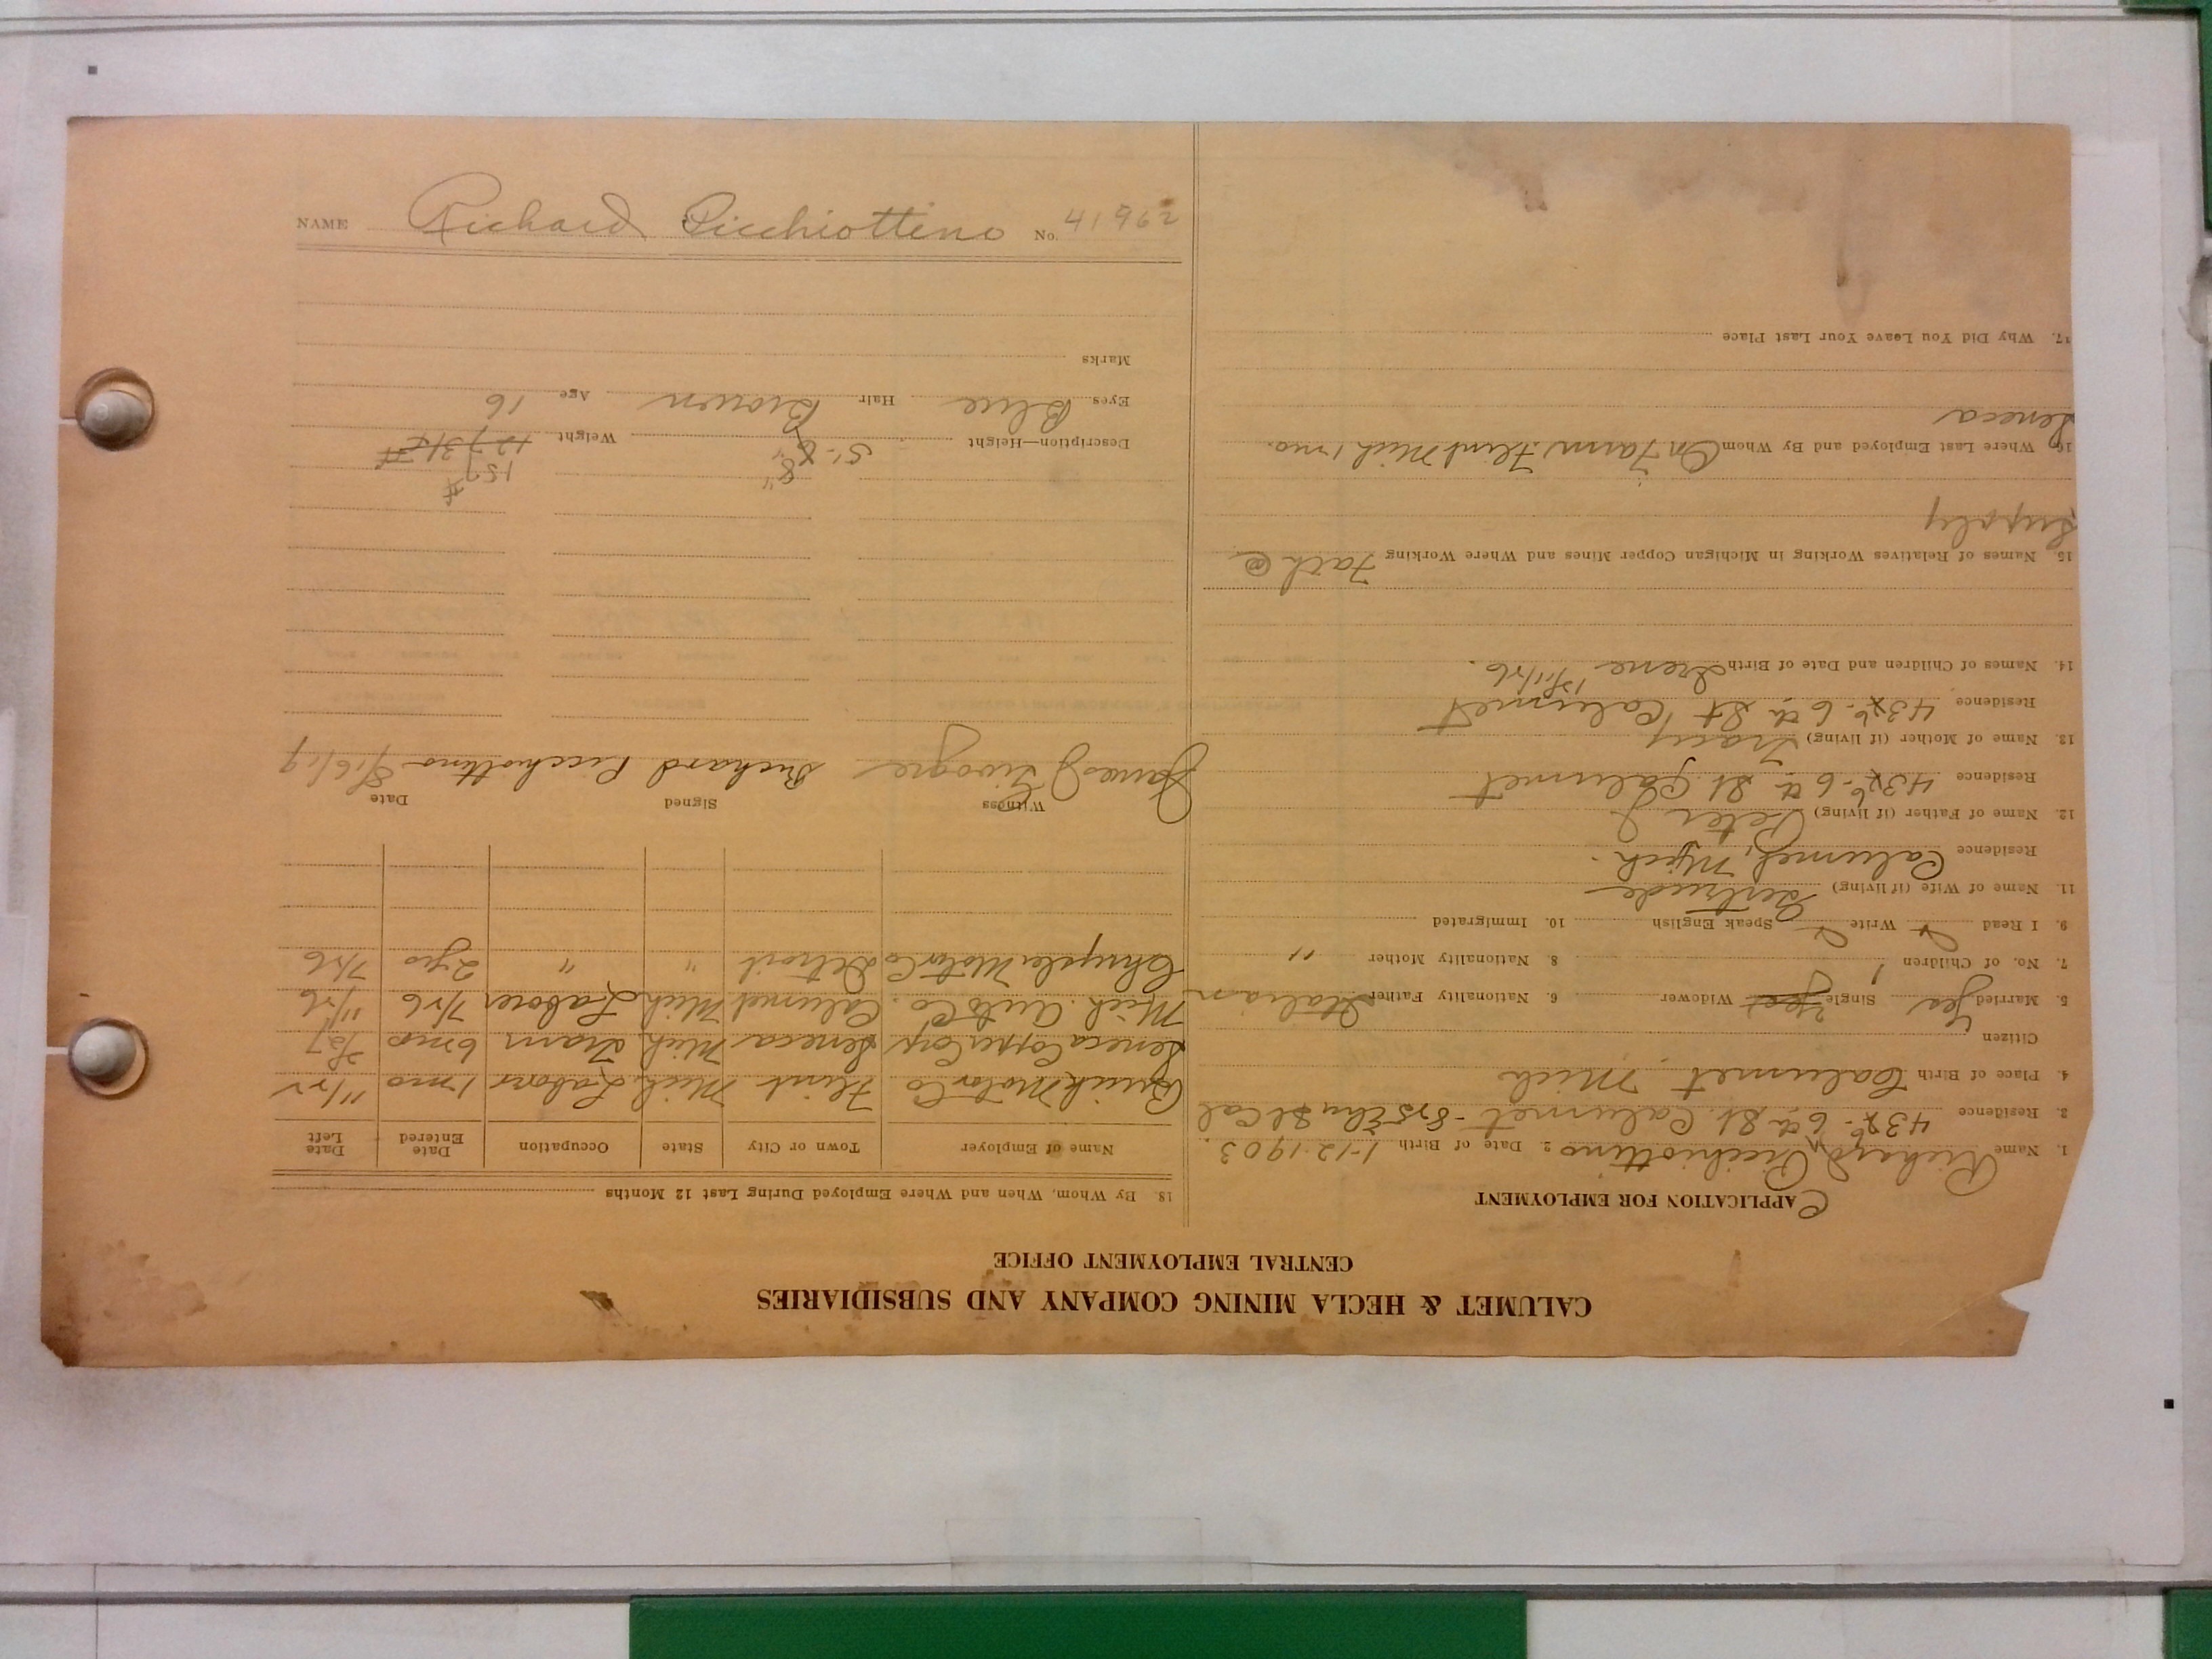 CALUMET & HECLA MINING COMPANY AND SUBSIDIARIES
CENTRAL EMPLOYMENT OFFICE
APPLICATION FOR EMPLOYMENT
1. Name Richard Picchiottino 2. Date of Birth 1-12-1903.
3. Residence 6th St. Calumet - St Cal
4. Place of Birth Calumet Mich
Citizen
5. Married Yes Single Widower 6. Nationality Father Italian
7. No. of Children 1 8. Nationality Mother "
9. I Read Write Speak English 10. Immigrated
11. Name of Wife (if living) Gertrude
Residence Calumet, Mich.
12. Name of Father (if living) Peter
Residence 6th St Calumet
13. Name of Mother (if living) Tracy
Residence 6th St Calumet
14. Names of Children and Date of Birth Irene
15. Names of Relatives Working in Michigan Copper Mines and Where Working Fath @
Supply
16. Where Last Employed and By Whom On Farm Flint Mich 1 mo.
Seneca
17. Why Did You Leave Your Last Place
18. By Whom, When and Where Employed During Last 12 Months
Name of Employer Town or City State Occupation Date Entered Date Left
Buick Motor Co. Flint Mich. Labor 1 mo
Seneca Copper Corp Seneca Mich. Tram 6 mo
Mich. Auto Co. Calumet Mich Laborer 7/26 11/26
Chrysler Motor Co Detroit " " 2 yrs 7/26
Witness Signed Date
James J Richard Picchiottino 8/16/19
8" 157#
Description—Height 5'- Weight
Eyes Blue Hair Brown Age 16
Marks
NAME Richard Picchiottino No. 41962